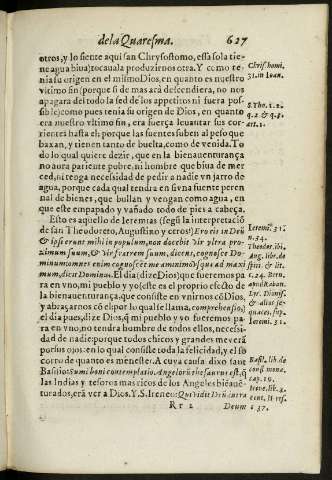 de la Quaresma. 627
otros, y lo siente aqui san Chrysostomo, essa sola tie-
ne agua biua) tocauala produzirnos otra. Y como te-
nia su origen en el mismo Dios, en quanto es nuestro
vltimo fin (porque si de mas acà descendiera, no nos
apagara del todo la sed de los appetitos ni fuera pos-
sible) como pues tenia su origen de Dios, en quanto
era nuestro vltimo fin, era fuerça leuantar sus cor-
rientes hasta el: porque las fuentes suben al peso que
baxan, y tienen tanto de buelta, como de venida. To
do lo qual quiere dezir, que en la bienauenturança
no aura pariente pobre, ni hombre que biua de mer
ced, ni tenga necessidad de pedir a nadie vn jarro de
agua, porque cada qual tendra en si vna fuente peren
nal de bienes, que bullan y vengan como agua, en
que este empapado y vañado todo de pies a cabeça.
Esto es aquello de Ieremias (segũ la interpretació
de san Theodoreto, Augustino y otros) Ero eis in Deũ
& ipsi erunt mihi in populum, non docebit vir vltra pro-
ximum suum, & vir fratrem suum, dicens, cognosce Do-
minum: omnes enim cognoscẽt me a minimo vsque ad maxi
mum, dicit Dominus. El dia (dize Dios) que fueremos pa
ra en vno, mi pueblo y yo (este es el proprio efecto de
la bienauenturança, que consiste en vnirnos cõ Dios,
y abraçarnos cõ el por lo qual se llama, comprehensio)
el dia pues, dize Dios, q̃ mi pueblo y yo fueremos pa
ra en vno, no tendra hombre de todos ellos, necessi-
dad de nadie: porque todos chicos y grandes me verá
por sus ojos: en lo qual consiste toda la felicidad, y el so
corro de quanto es menester. A cuya causa dixo sant
Basilio: Summi boni contemplatio Angelorũ thesaurus est, q̃
las Indias y tesoros mas ricos de los Angeles biẽaué-
turados, era ver a Dios. Y S. Ireneo: Qui vidit Deũ extra
Rr 2 Deum
Chris. homi.
31. in Ioan.
S. Tho. 1. 2.
q. 2 & 3.
art. 1.
Ieremi. 31.
n. 34.
Theodor. ibi,
Aug. lib. de
spiri. & lit.
c. 24. Bern.
apud Raban.
Lyr. Dionys.
& alios se-
quaces, sup.
Ieremi. 31.
Basil. lib. de
cap. 19.